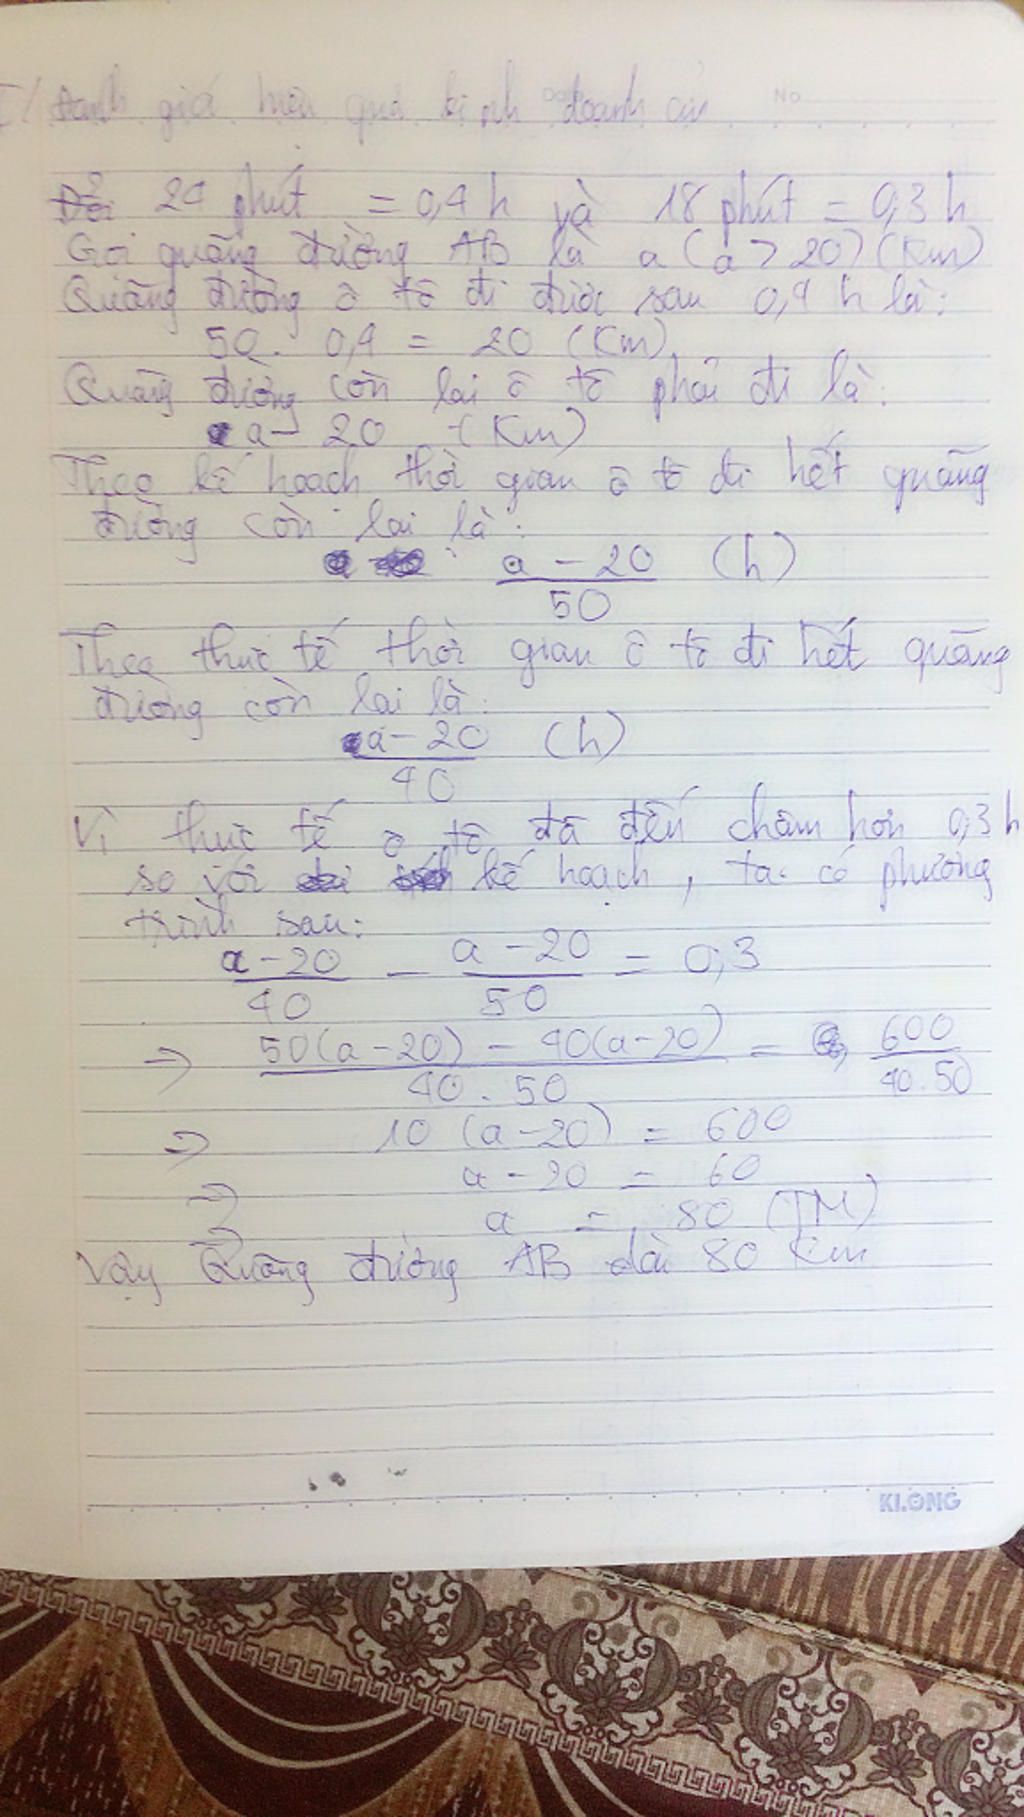 I/ Đánh giá hiệu quả kinh doanh của
No
Đổi 24 phút = 0,4 h và 18 phút = 0,3 h
Gọi quãng đường AB là a (a > 20) (Km)
Quãng đường ô tô đi được sau 0,4 h là:
50. 0,4 = 20 (Km)
Quãng đường còn lại ô tô phải đi là:
a - 20 (Km)
Theo kế hoạch thời gian ô tô đi hết quãng
đường còn lại là:
a - 20 (h)
50
Theo thực tế thời gian ô tô đi hết quãng
đường còn lại là:
a - 20 (h)
40
Vì thực tế ô tô đã đến chậm hơn 0,3 h
so với kế hoạch, ta có phương
trình sau:
a - 20 - a - 20 = 0,3
40 50
=> 50(a - 20) - 40(a - 20) = 600
40 . 50 40 . 50
=> 10 (a - 20) = 600
a - 20 = 60
=> a = 80 (TM)
Vậy Quãng đường AB dài 80 Km
KLONG